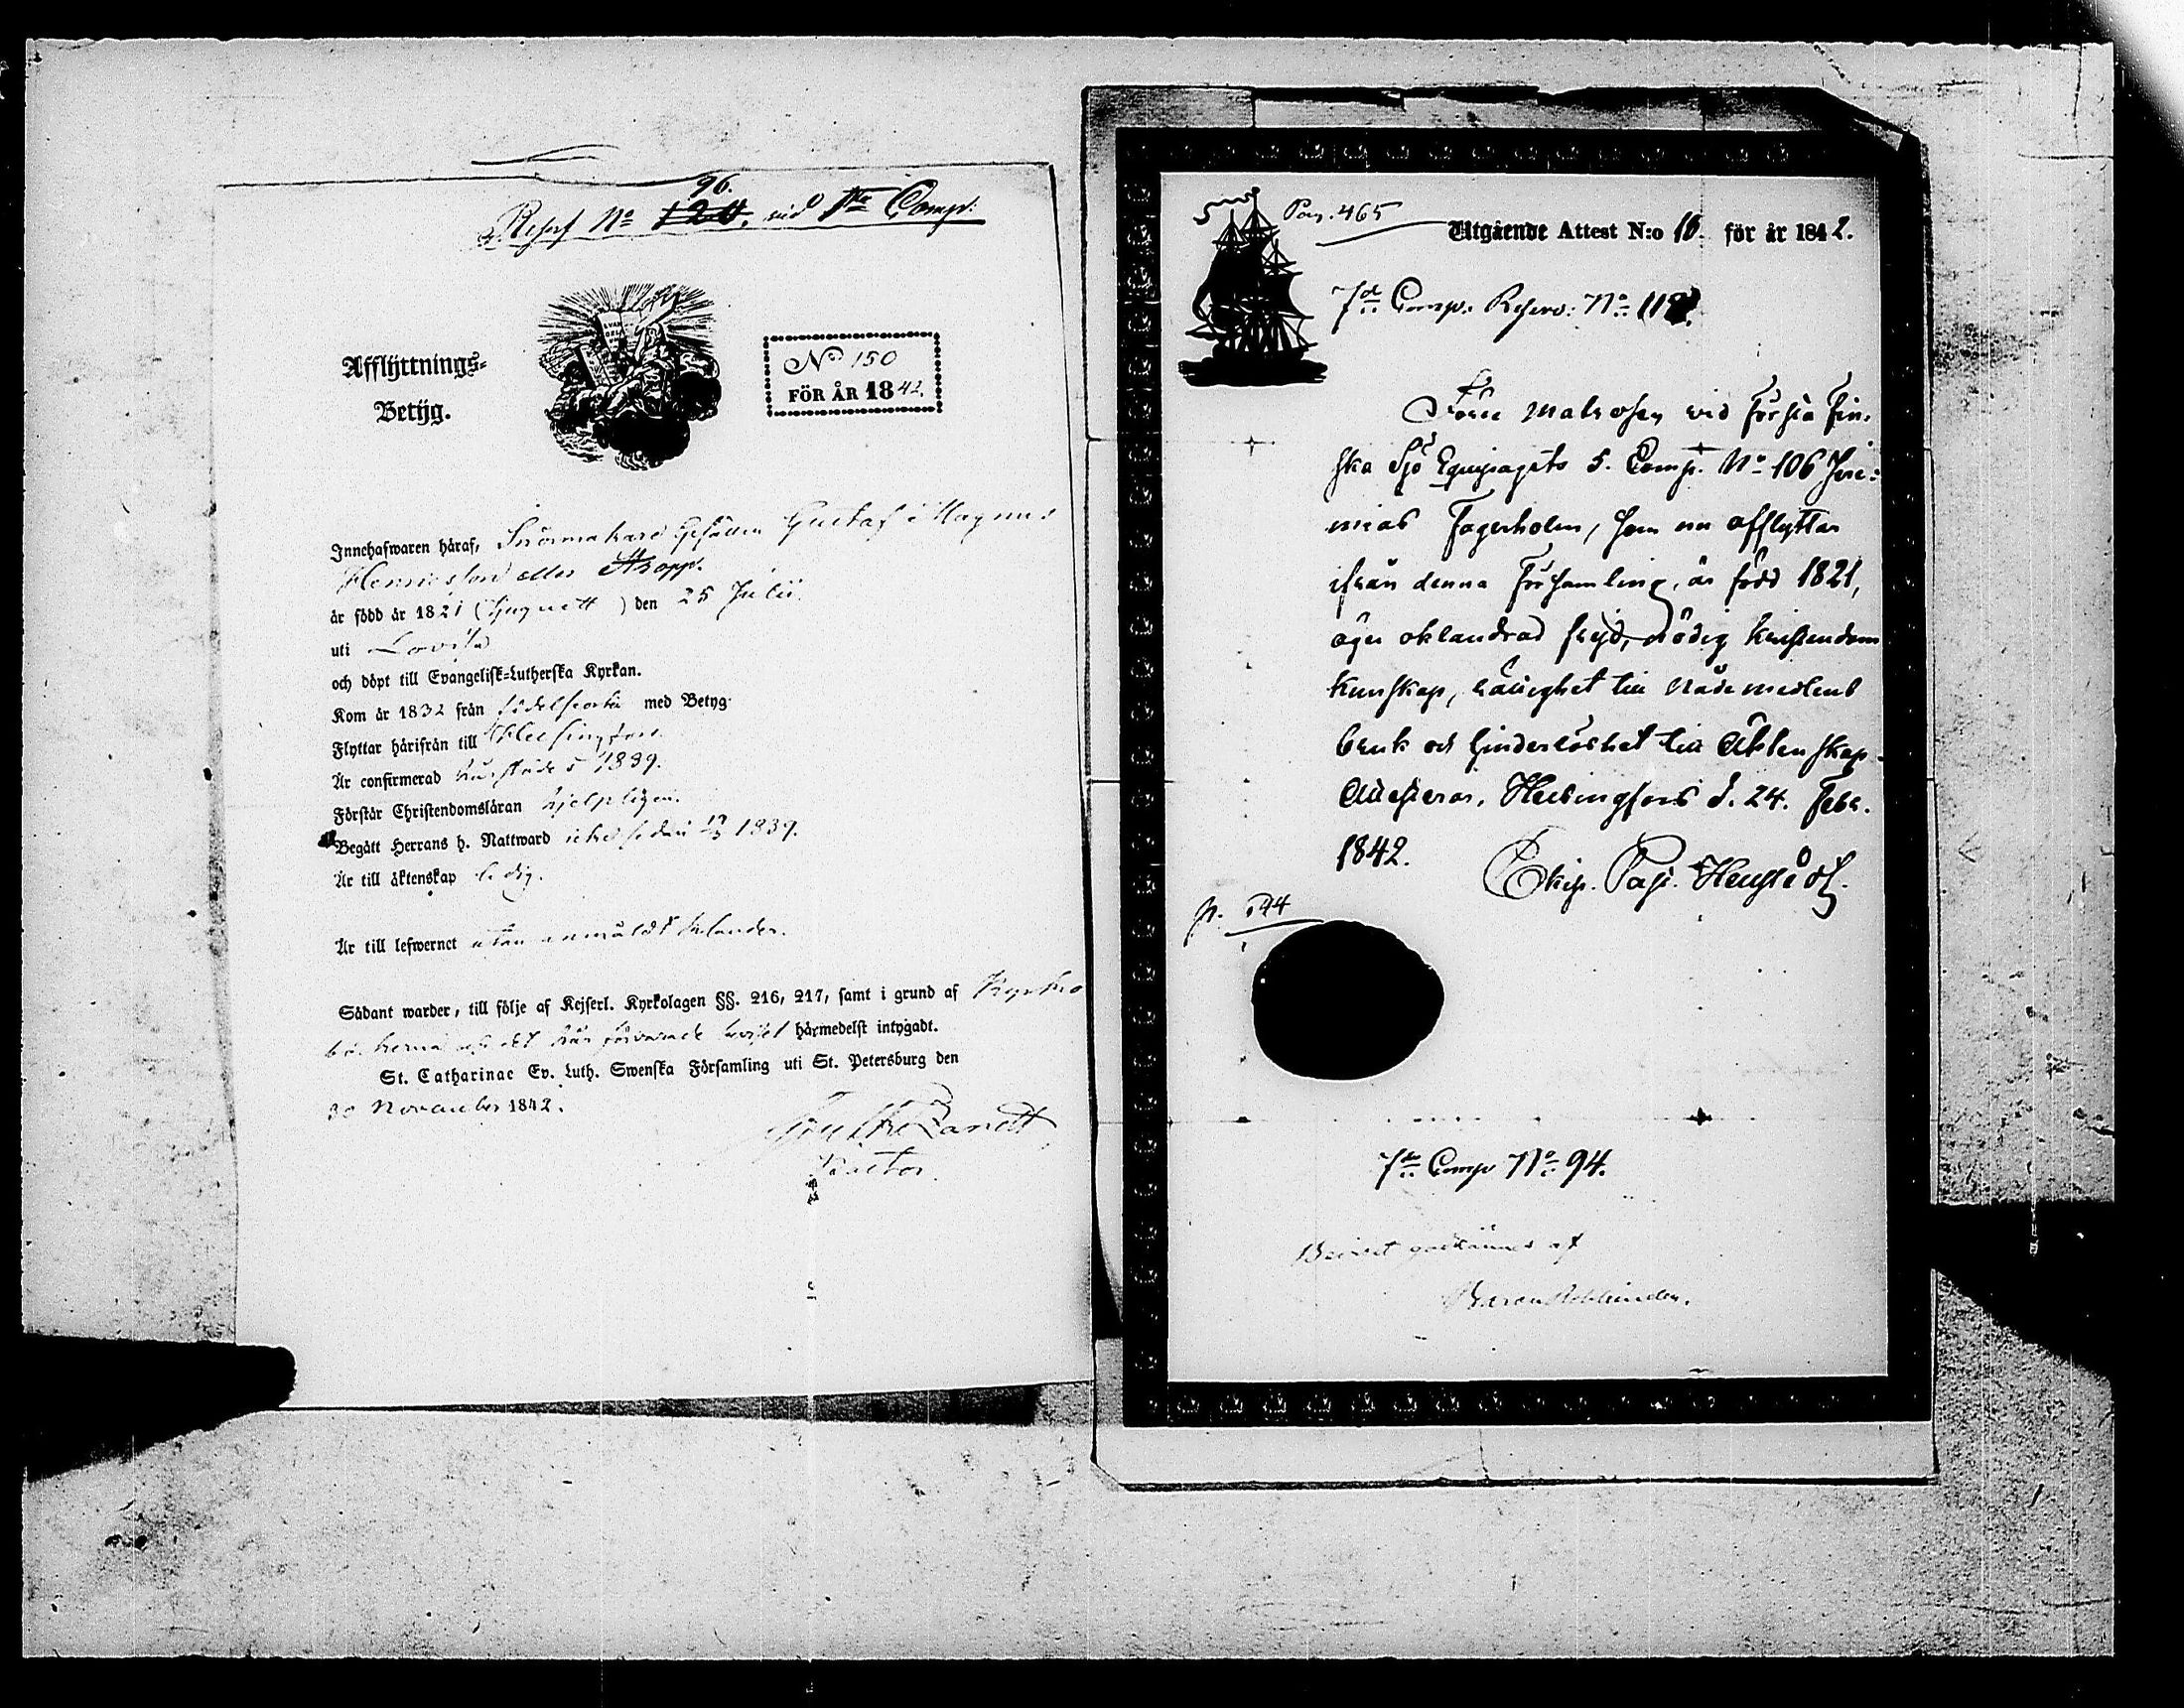 96.
Reserf No 120. vid 1ste Comp:
Afflyttnings-
Betyg.
No 150
FÖR ÅR 1842.
Innehafwaren häraf, Snörmakare Gesällen Gustaf Magnus
Henricsson eller Stropp.
är född år 1821 (tjuguett) den 25 Julii
uti Lovisa
och döpt till Evangelisk-Lutherska Kyrkan.
Kom år 1832 från födelseorten med Betyg
Flyttar härifrån till Helsingfors
Är confirmerad härstädes 1839.
Förstår Christendomsläran hjelpligen.
Begått Herrans h. Nattward icke sedan 1839.
Är till äktenskap ledig.
Är till lefwernet utan anmäldt klander.
Sådant warder, till följe af Kejserl. Kyrkolagen §§. 216, 217, samt i grund af Kyrko
böckerna och det här förvarade härmedelst intygadt.
St. Catharinae Ev. Luth. Swenska Församling uti St. Petersburg den
30 November 1842.
Pastor.
Pag. 465
Utgående Attest N:o 10. för år 1842.
7de Comp. Reserv: No 118.
Förre Matrosen vid Första Fin-
ska Sjö Equipagets 5. Comp. No 106 Jere-
mias Fagerholm, som nu afflyttar
ifrån denna Församling, är född 1821,
äger oklandrad frejd, nödig kristendoms
kunskap, rättighet till Nådemedlens
bruk och hinderlöshet till Äktenskap.
Attesteras, Helsingfors d. 24. Febr.
1842.
Ekip. Past.
p. 544
7de Comp No 94.
Beviset godkännes af